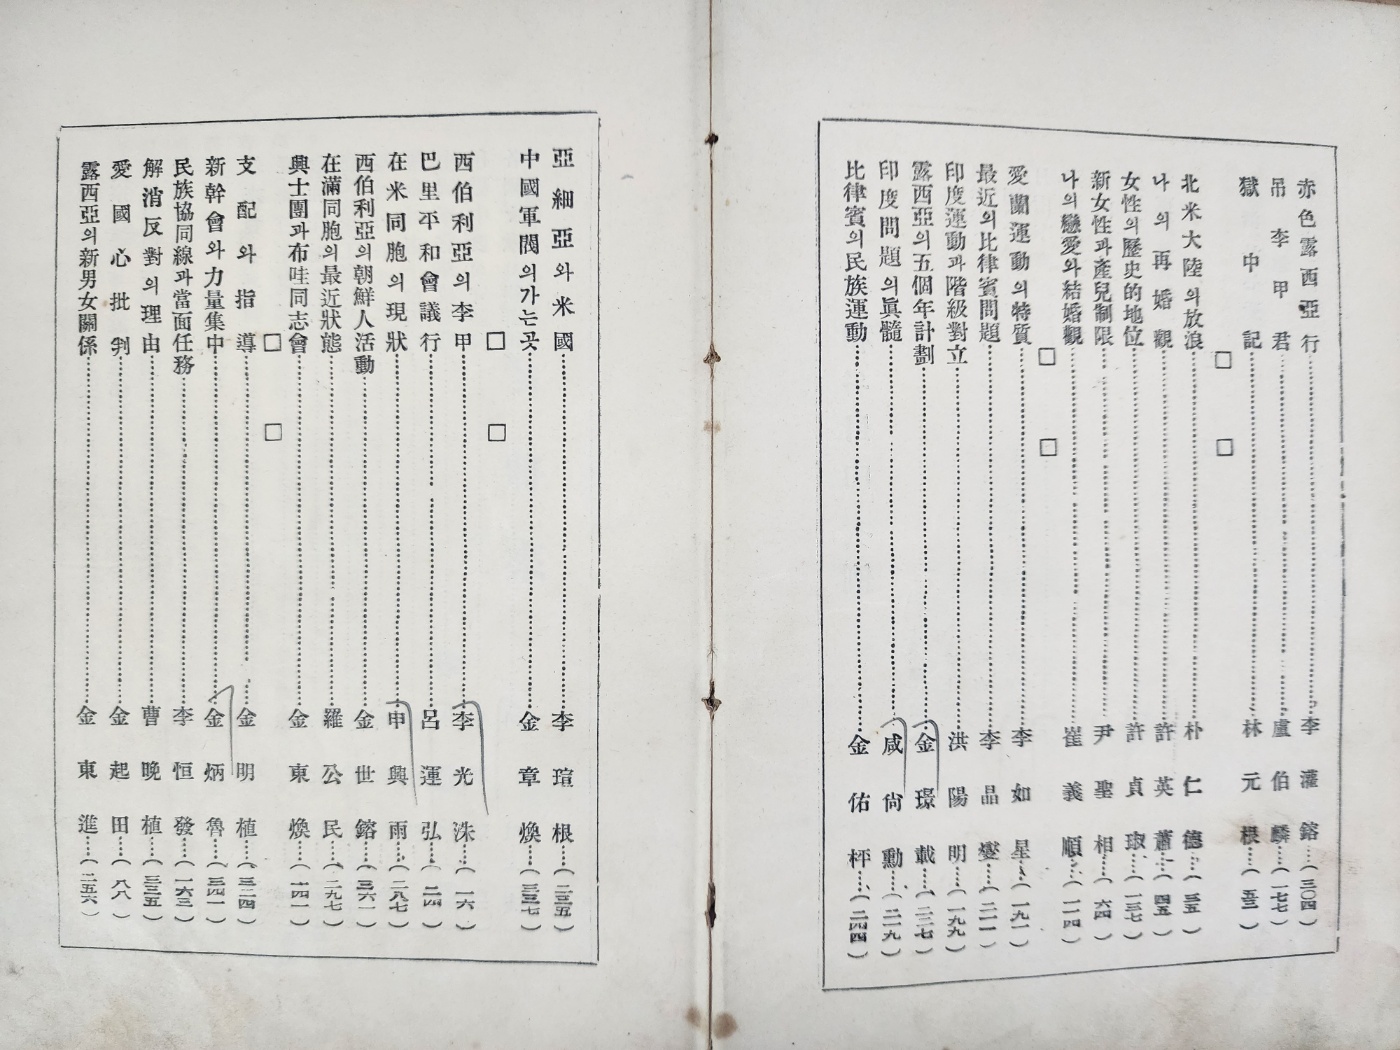 赤色露西亞行……李灌鎔……(三〇四)
吊李甲君……盧伯麟……(一七七)
獄中記……林元根……(五三)
□ □
北米大陸의放浪……朴仁德……(三五)
나의再婚觀……許英肅……(四五)
女性의歷史的地位……許貞琡……(一三七)
新女性과產兒制限……尹聖相……(六四)
나의戀愛와結婚觀……崔義順……(一一四)
□ □
愛蘭運動의特質……李如星……(一九一)
最近의比律賓問題……李晶燮……(二一一)
印度運動과階級對立……洪陽明……(一九九)
露西亞의五個年計劃……金璟載……(二二七)
印度問題의眞髓……咸尙勳……(二一九)
比律賓의民族運動……金佑枰……(二四四)
亞細亞와米國……李瑄根……(二三五)
中國軍閥의가는곳……金章煥……(三三七)
□ □
西伯利亞의李甲……李光洙……(一六)
巴里平和會議行……呂運弘……(二四)
在米同胞의現狀……申興雨……(二八七)
西伯利亞의朝鮮人活動……金世鎔……(三六一)
在滿同胞의最近狀態……羅公民……(二九七)
興士團과布哇同志會……金東煥……(一四一)
□ □
支配와指導……金明植……(三二四)
新幹會와力量集中……金炳魯……(三四一)
民族協同線과當面任務……李恒發……(一六三)
解消反對의理由……曹晚植……(三三五)
愛國心批判……金起田……(八八)
露西亞의新男女關係……金東進……(二五六)